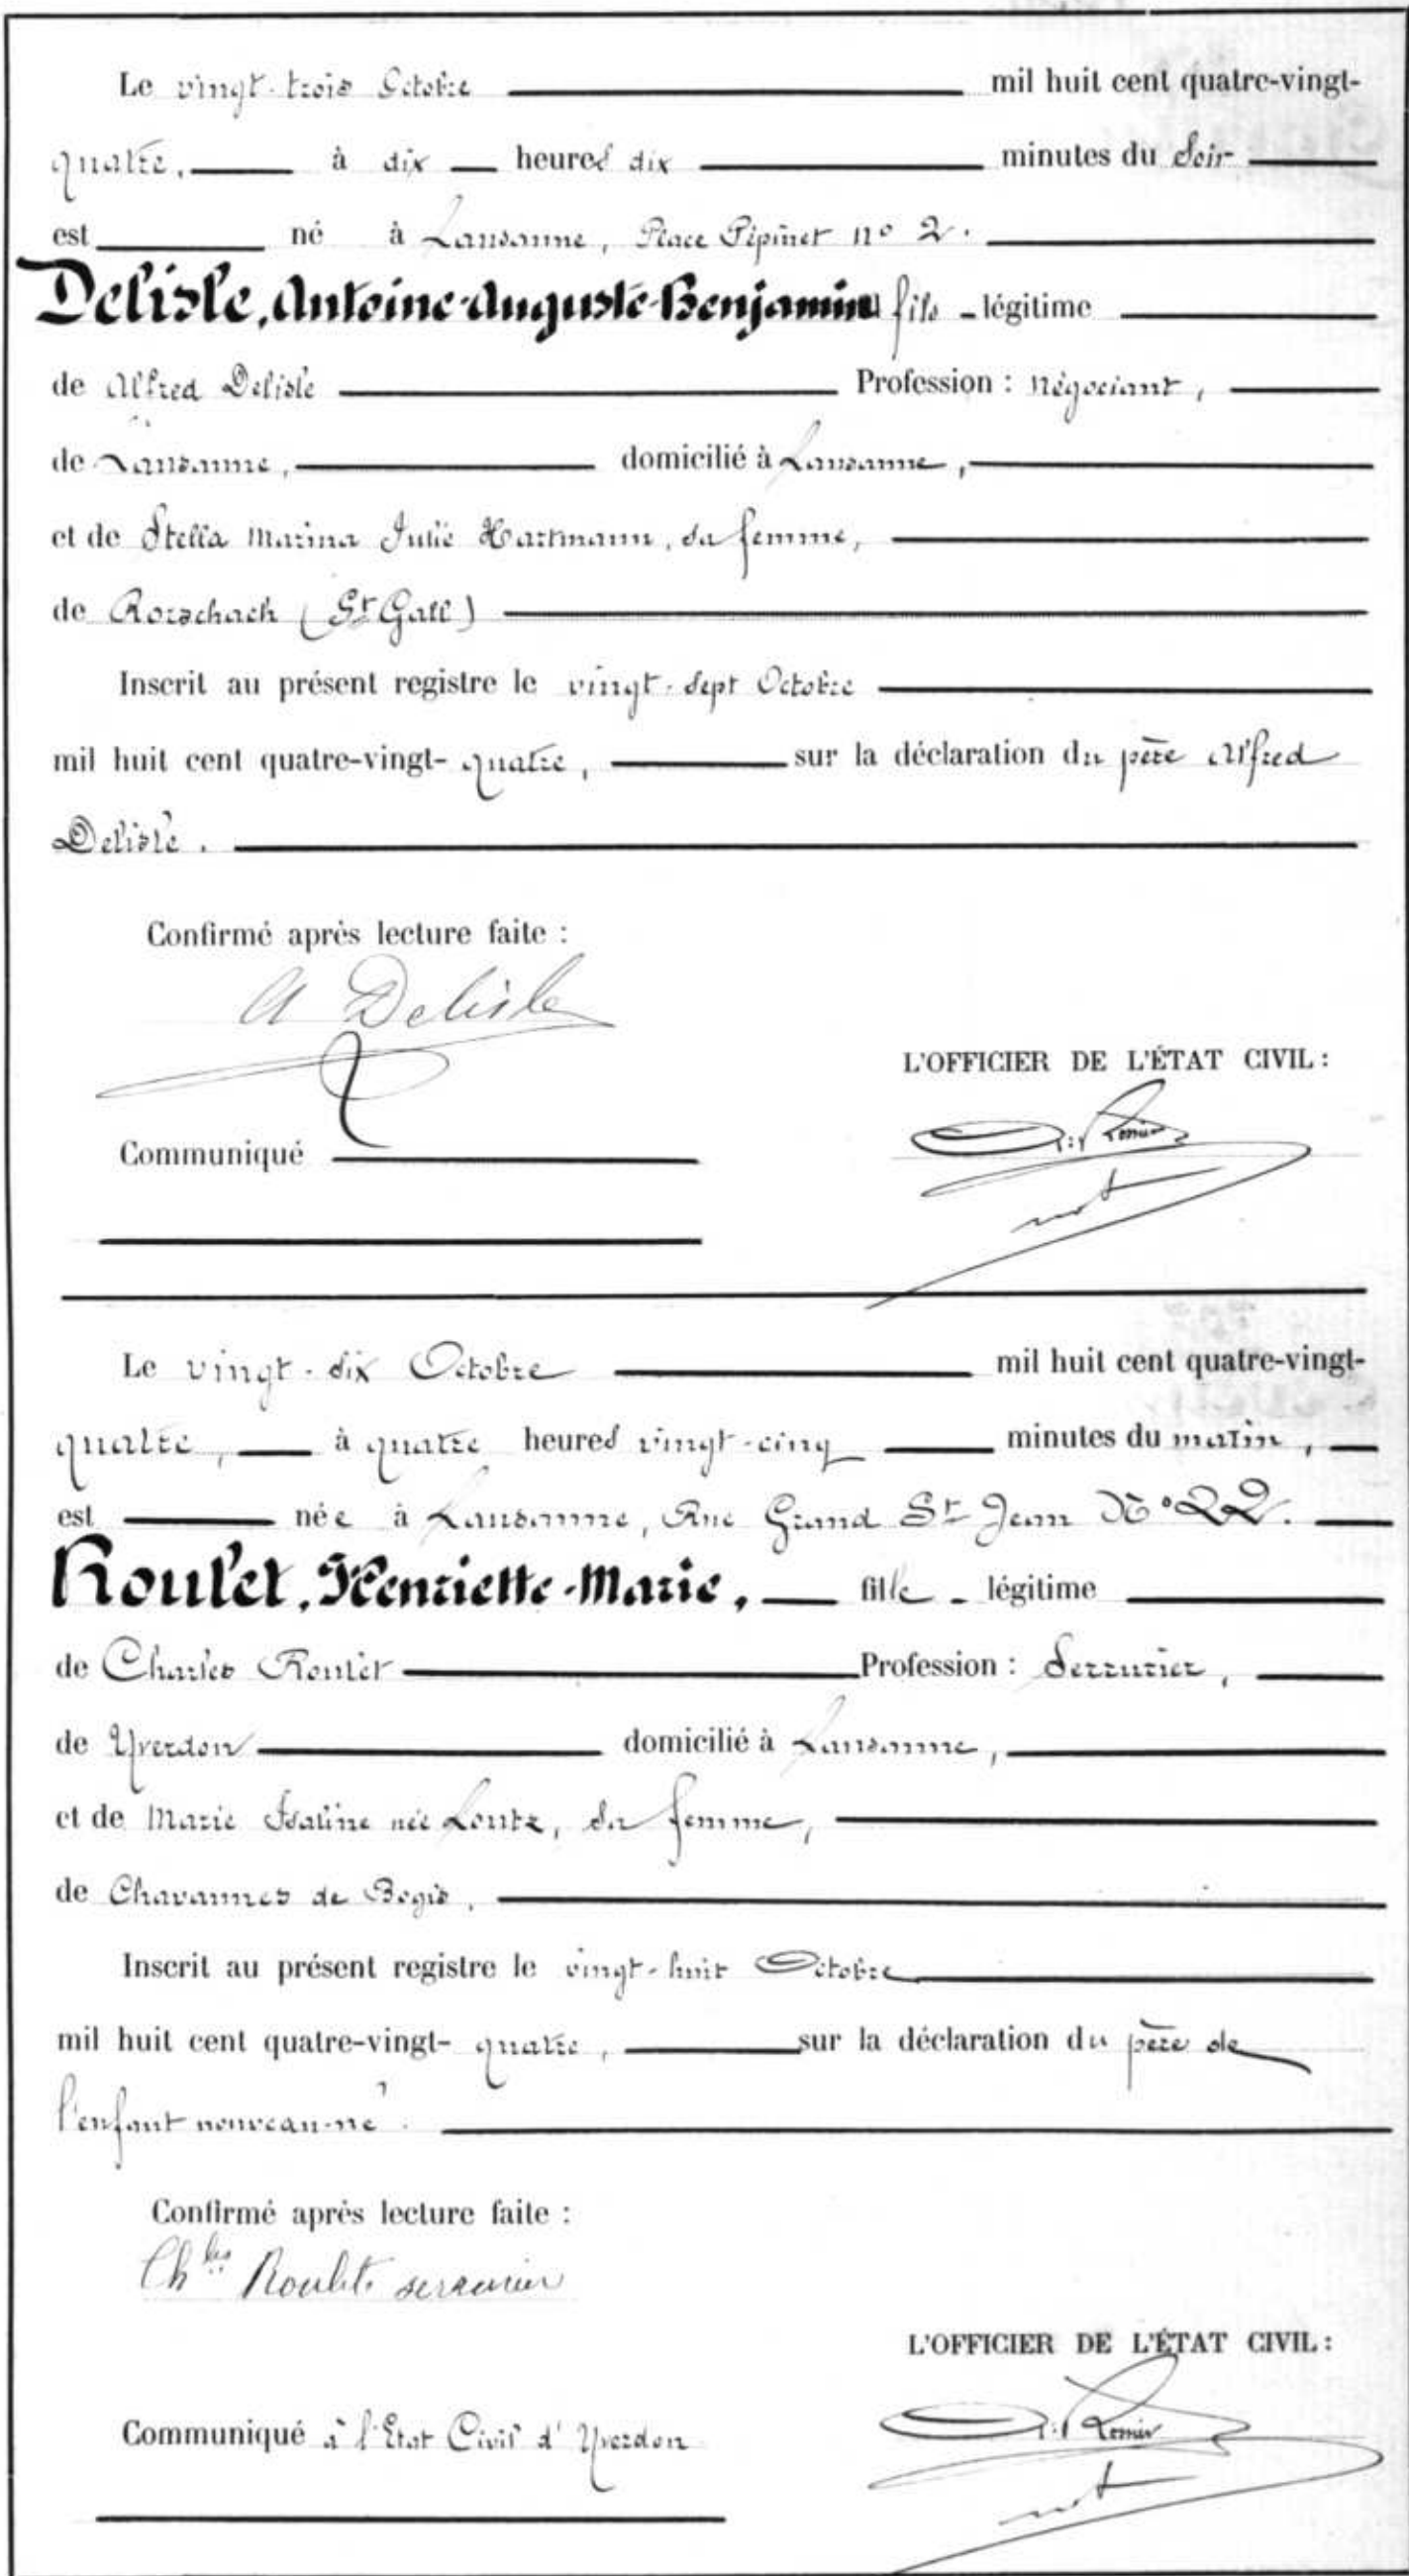 Le vingt-trois Octobre mil huit cent quatre-vingt-
quatre, à dix heures dix minutes du soir
est né à Lausanne, Place Pépinet n° 2.
Delisle, Antoine-Auguste-Benjamin fils légitime
de Alfred Delisle Profession : négociant,
de Lausanne, domicilié à Lausanne,
et de Stella Marina Julie Hartmann, sa femme,
de Rorschach (St Gall)
Inscrit au présent registre le vingt-sept Octobre
mil huit cent quatre-vingt- quatre, sur la déclaration du père Alfred
Delisle.
Confirmé après lecture faite :
A Delisle
L'OFFICIER DE L'ÉTAT CIVIL :
Communiqué
Le vingt-six Octobre mil huit cent quatre-vingt-
quatre, à quatre heures vingt-cinq minutes du matin,
est née à Lausanne, Rue Grand St Jean N° 22.
Roulet, Henriette-Marie, fille légitime
de Charles Roulet Profession : Serrurier,
de Yverdon domicilié à Lausanne,
et de Marie Isaline née Loutz, sa femme,
de Chavannes de Bogis,
Inscrit au présent registre le vingt-huit Octobre
mil huit cent quatre-vingt- quatre, sur la déclaration du père de
l'enfant nouveau-né.
Confirmé après lecture faite :
Ch les Roulet serrurier
L'OFFICIER DE L'ÉTAT CIVIL :
Communiqué à l'Etat Civil d'Yverdon